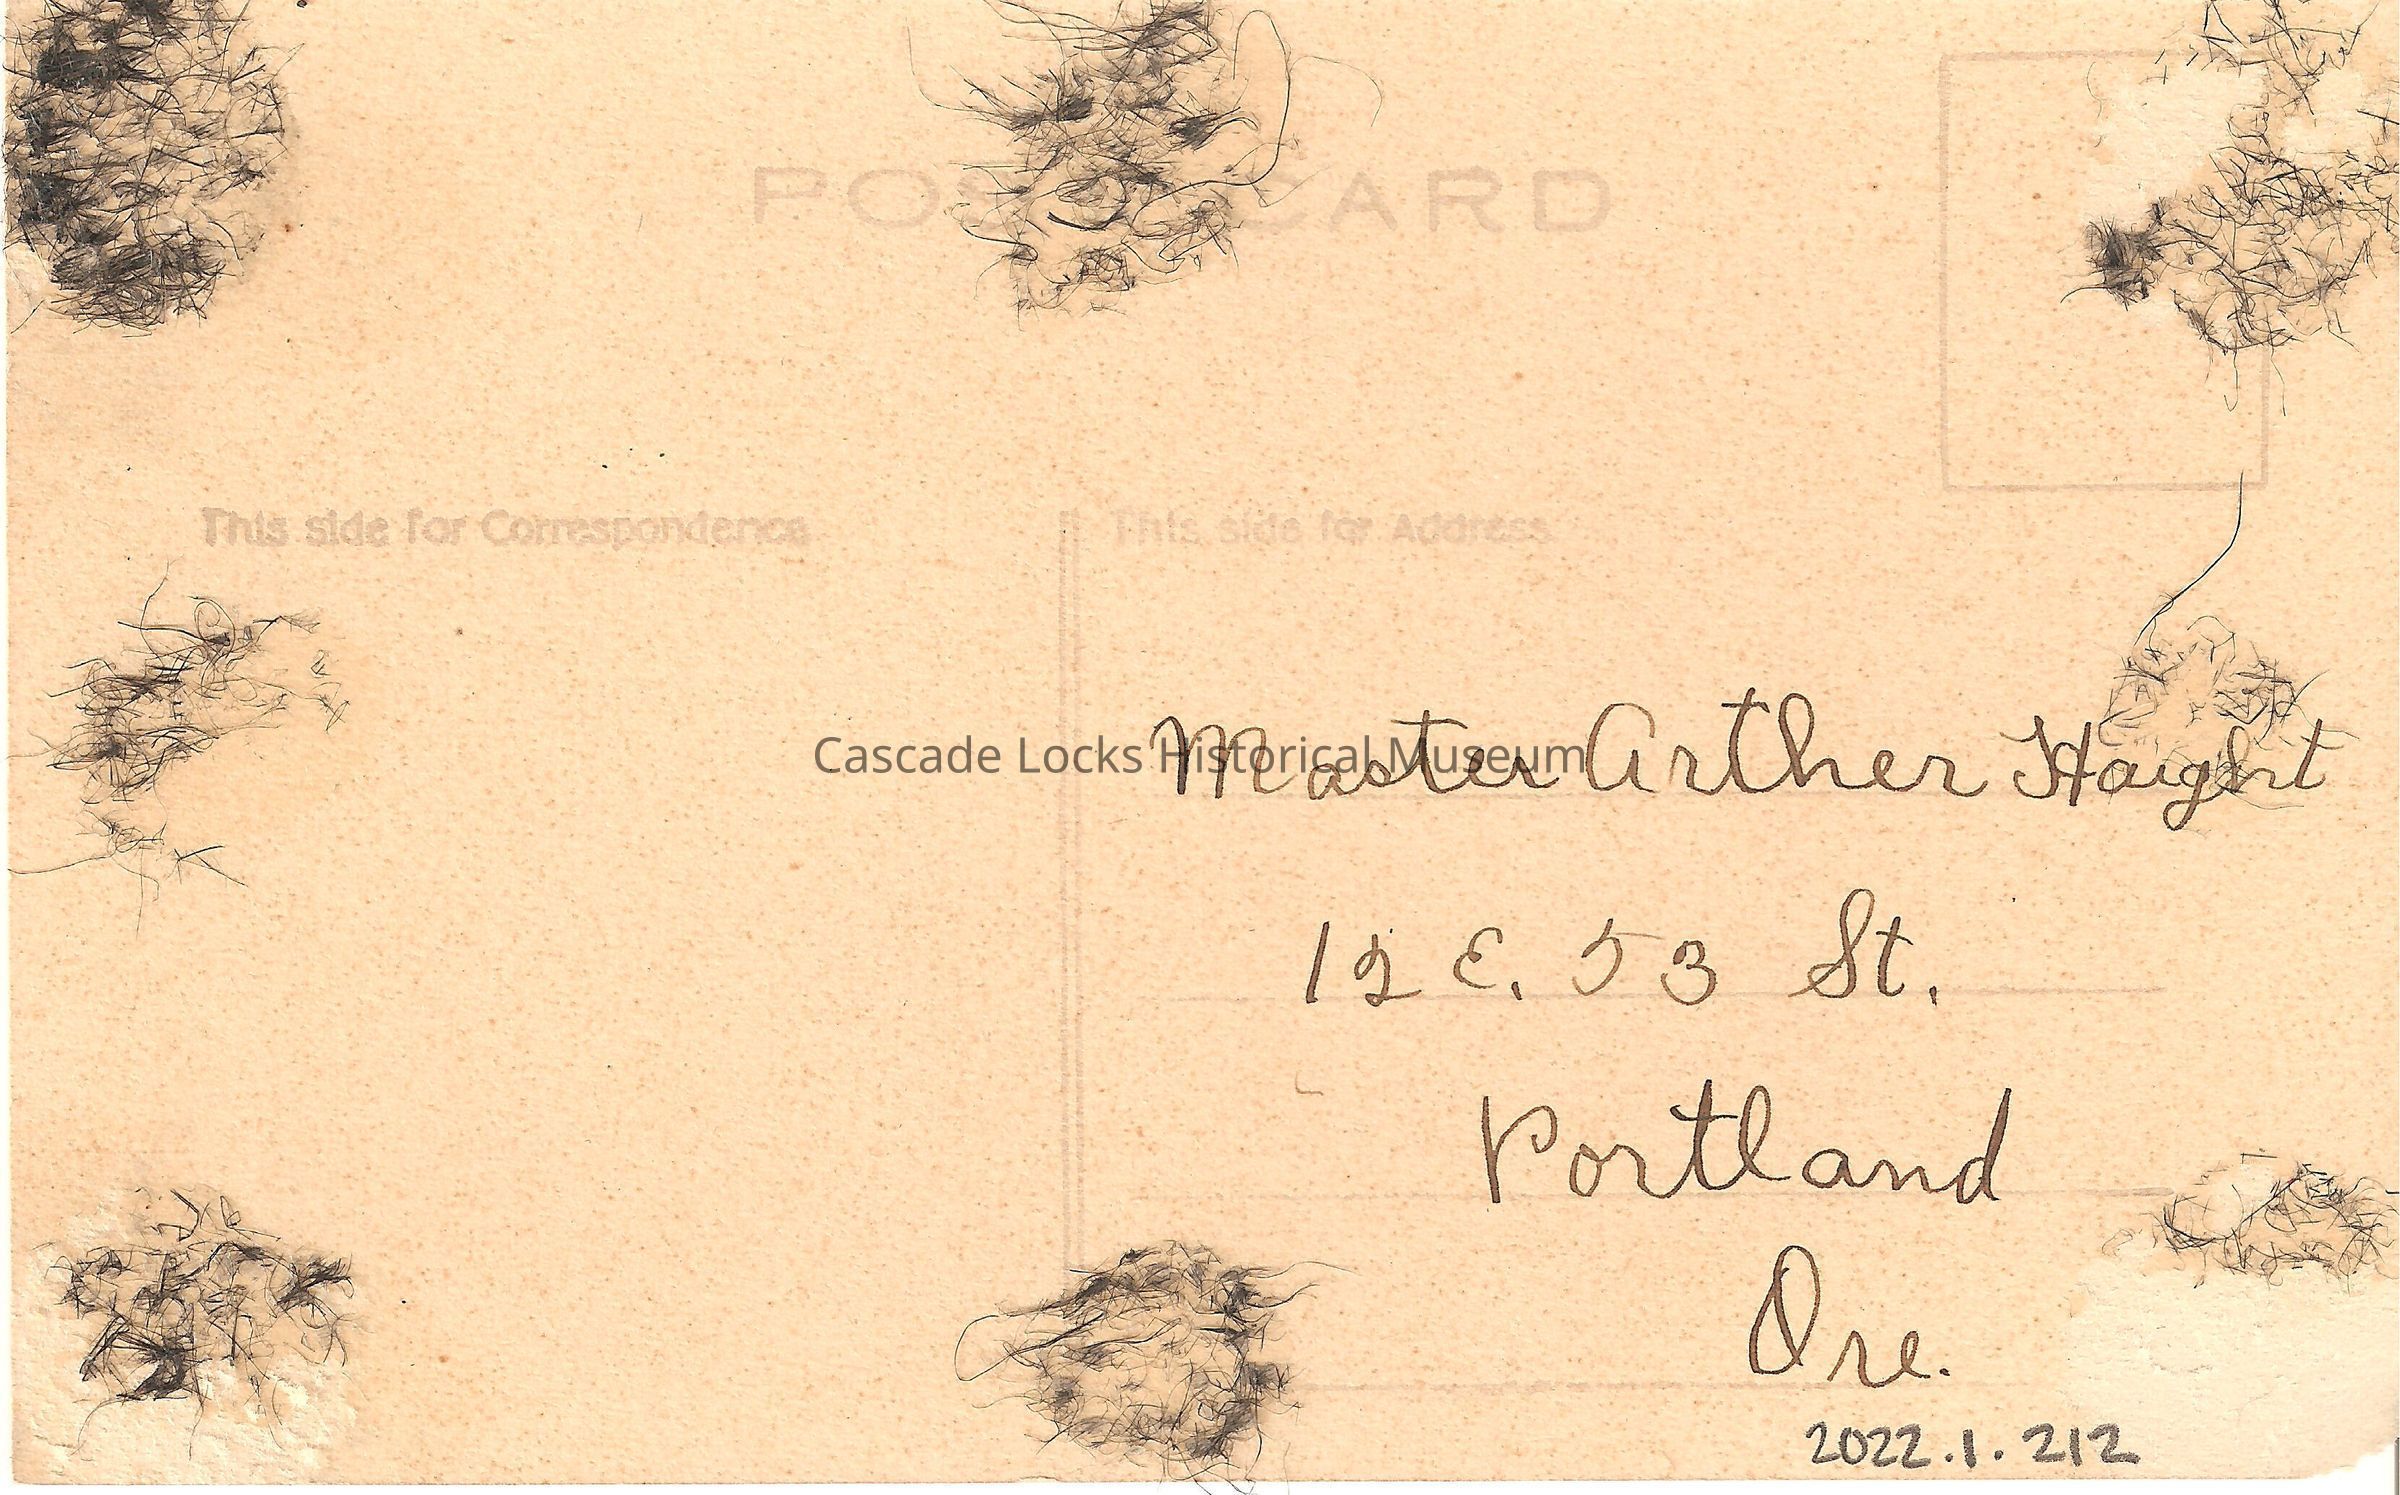 POST CARD
This side for Correspondence
This side for Address
Cascade Locks Historical Museum
Master Arther Haight
12 E. 53 St.
Portland
Ore.
2022.1.212